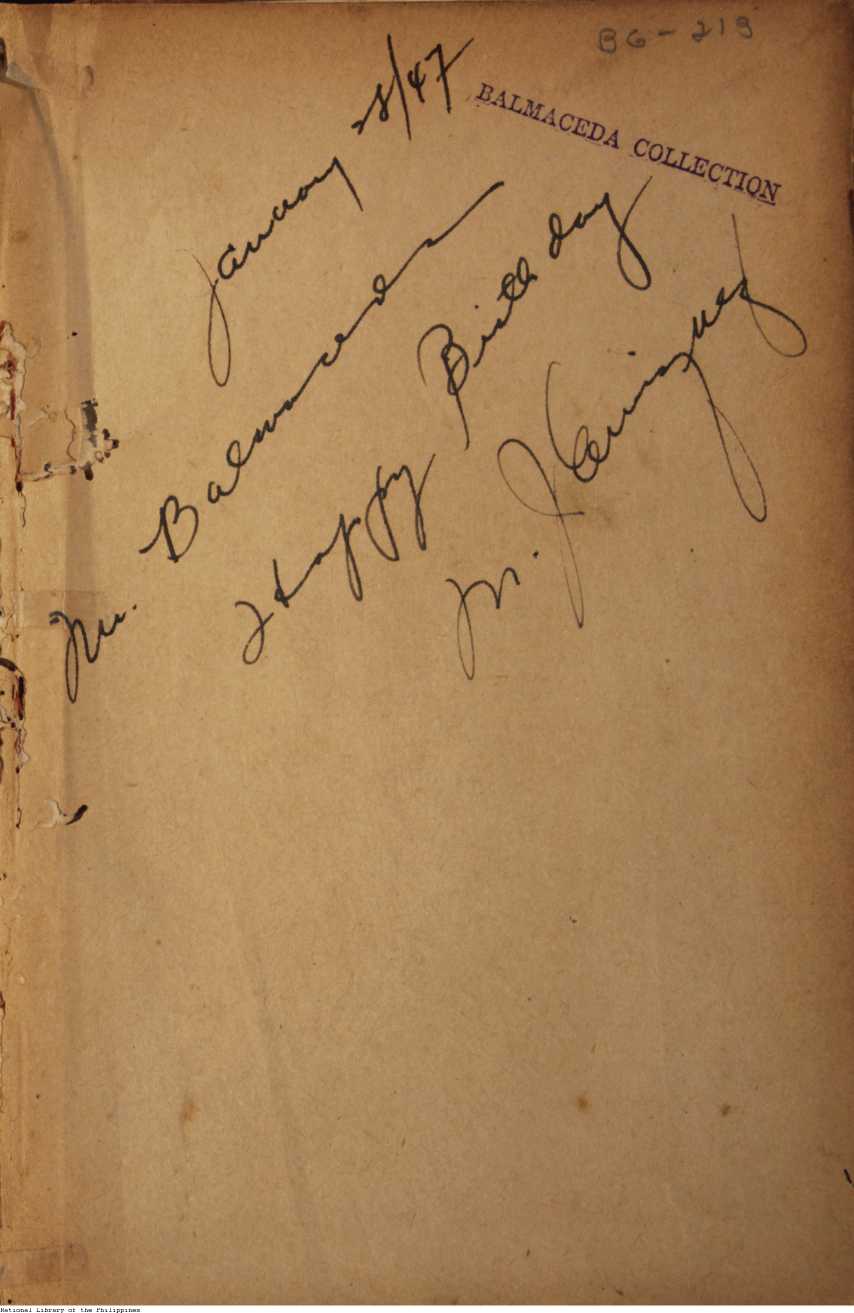 BG-213
BALMACEDA COLLECTION
January 28/47
Mr. Balmaceda
Happy Birthday
M.
National Library of the Philippines